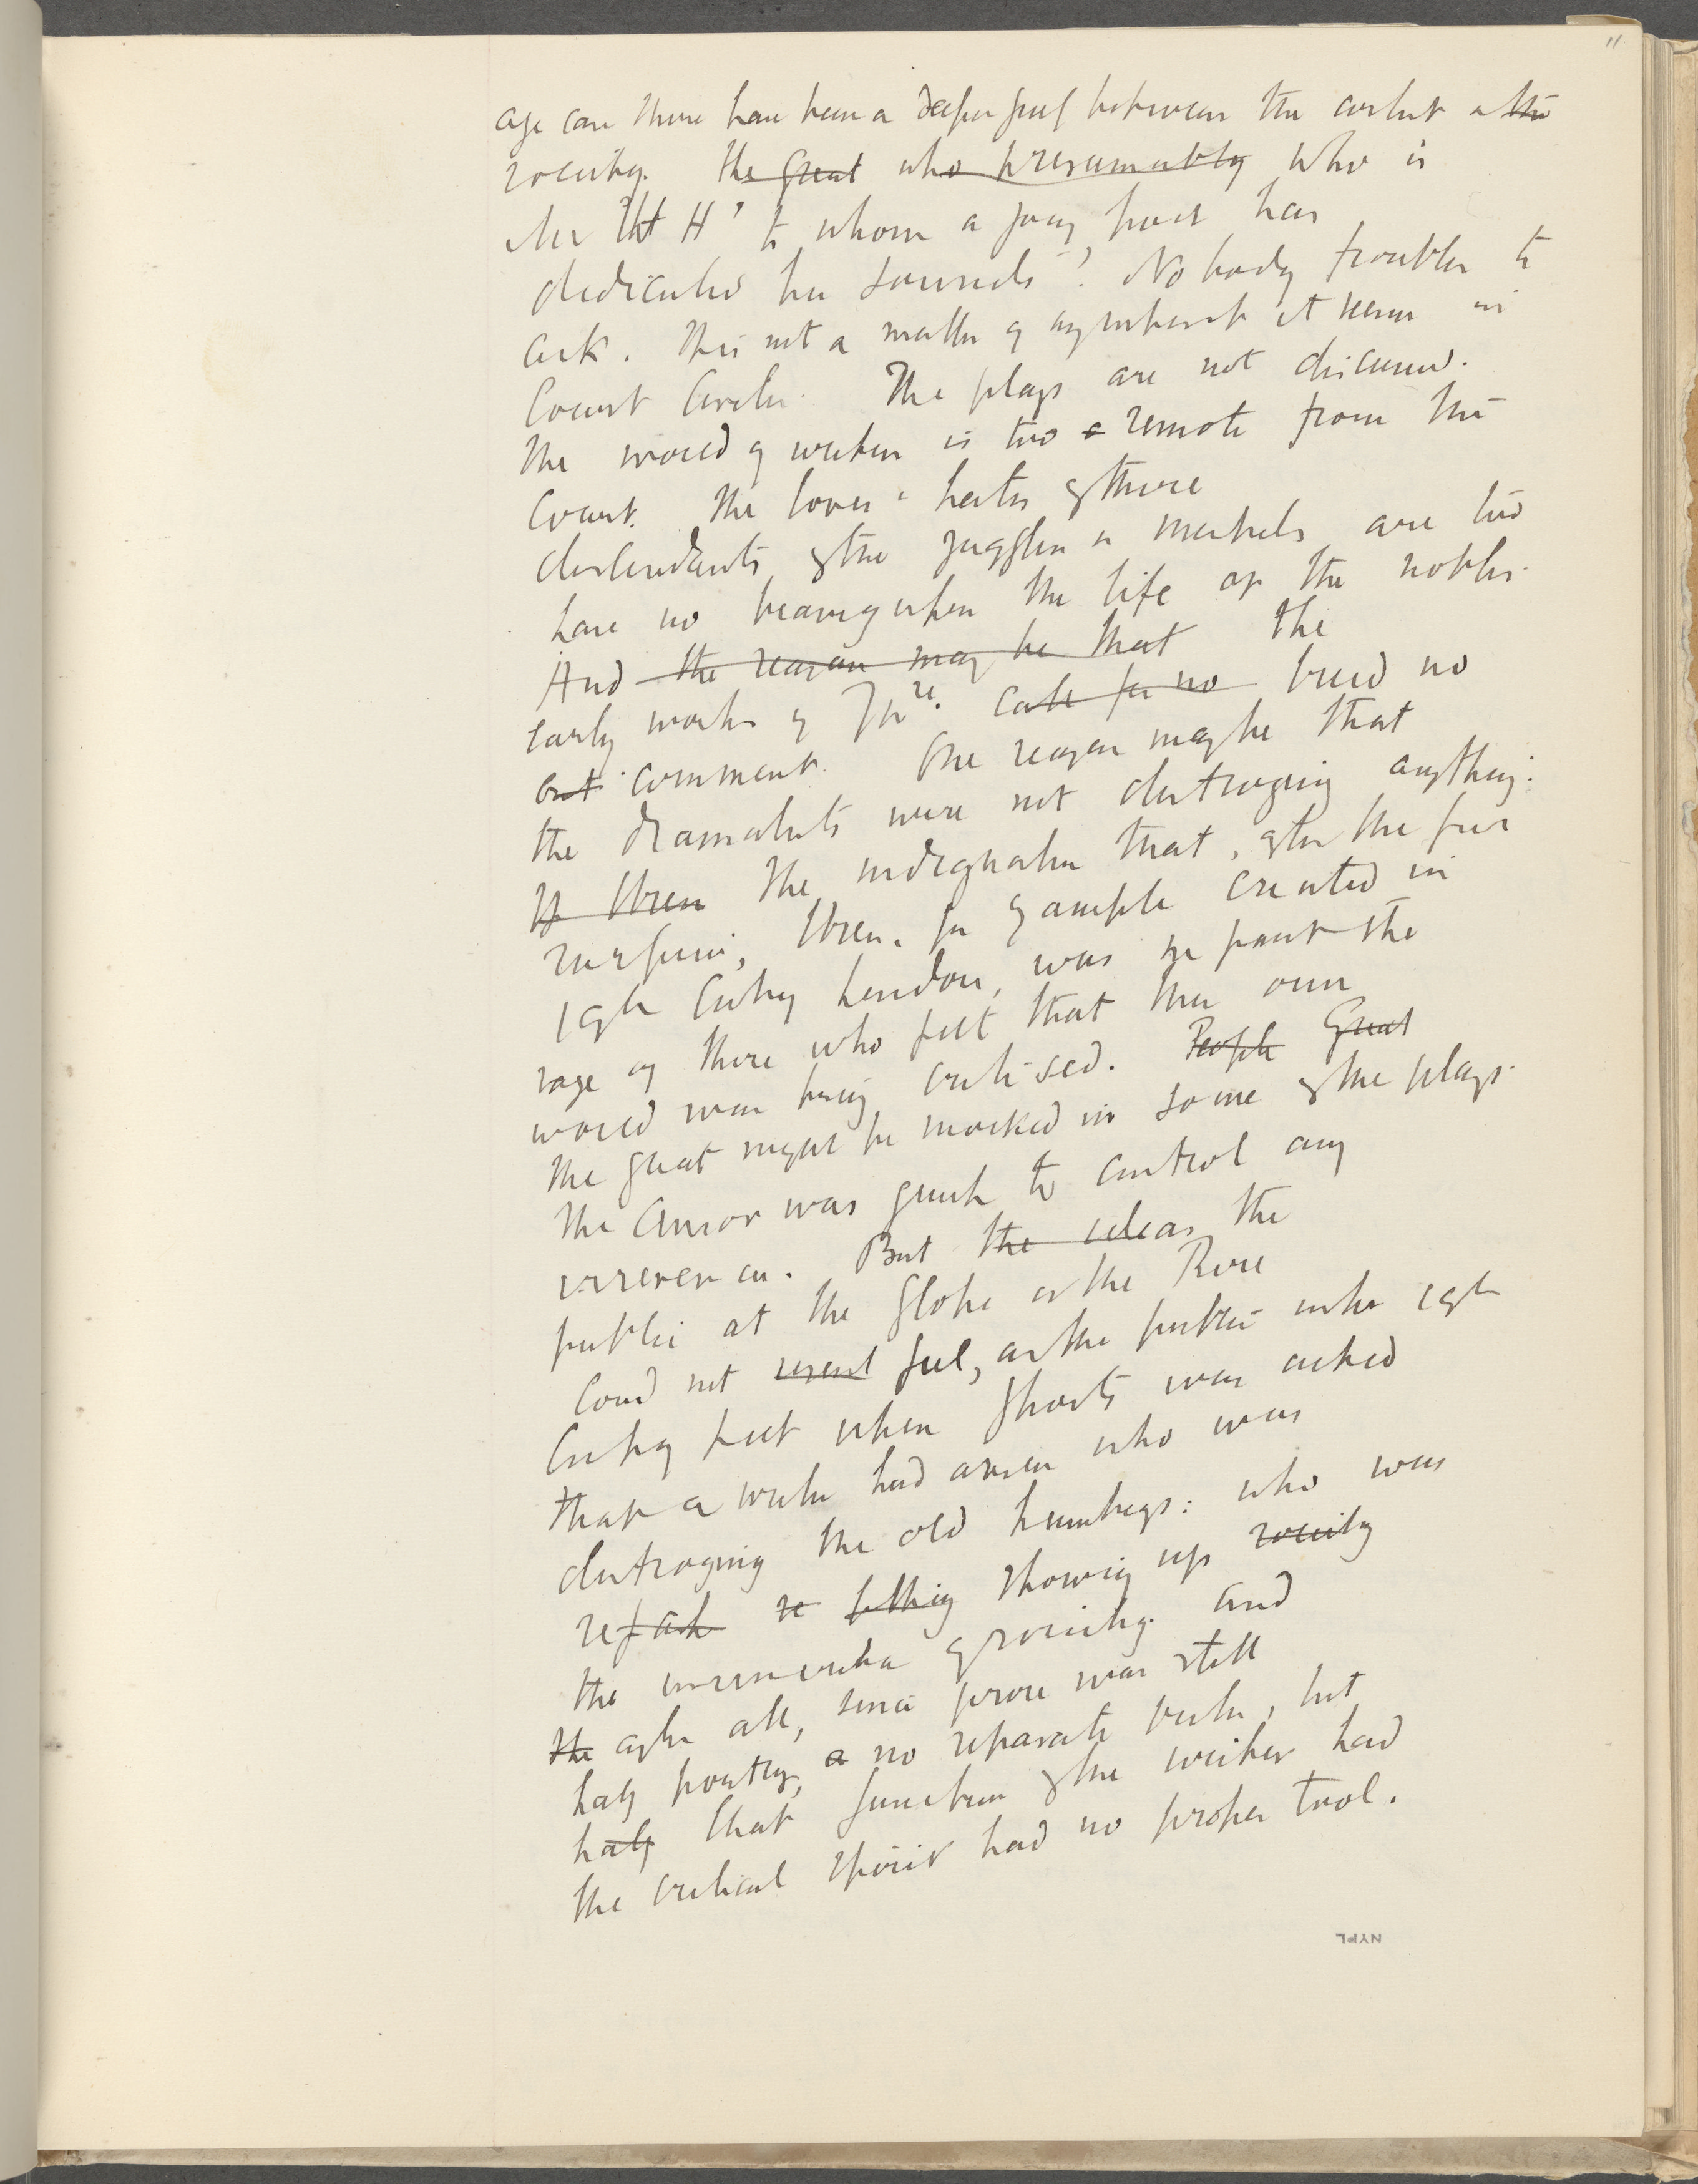 11
age can there have been a deeper gulf between the artist & the
society. the great who presumably Who is
Mr W H ' to whom a young poet has
dedicated his sonnets'? Nobody troubles to
ask. This not a matter of any interest it seems in
Court Circles. The plays are not discussed.
The world of writers is too a remote from the
Court. The loves & hates of these
descendants of the jugglers & minstrels are too
have no bearing upon the life of the nobles.
And the reason may be that the
early works of Shre. call for no breed no
out comment. One reason maybe that
the dramatists were not destroying anything.
If Ibsen The indignation that, after the first
surprise, Ibsen, for example created in
19th Century London, was in part the
rage of those who felt that their own
world was being criticised. People Great
The great might be mocked in some of the plays.
The Censor was quick to control any
irreverence. But the ideas the
public at the Globe or the Rose
Coud not resent feel, as the public in the 19th
Century felt when Ghosts was acted
that a writer had arisen who was
destroying the old humbugs: who was
re pulling showing up society
the insincerities of society. And
the after all, since prose was still
half poetry, a no separate but
half that function of the writer had
the critical spirit had no proper tool.
NYPL